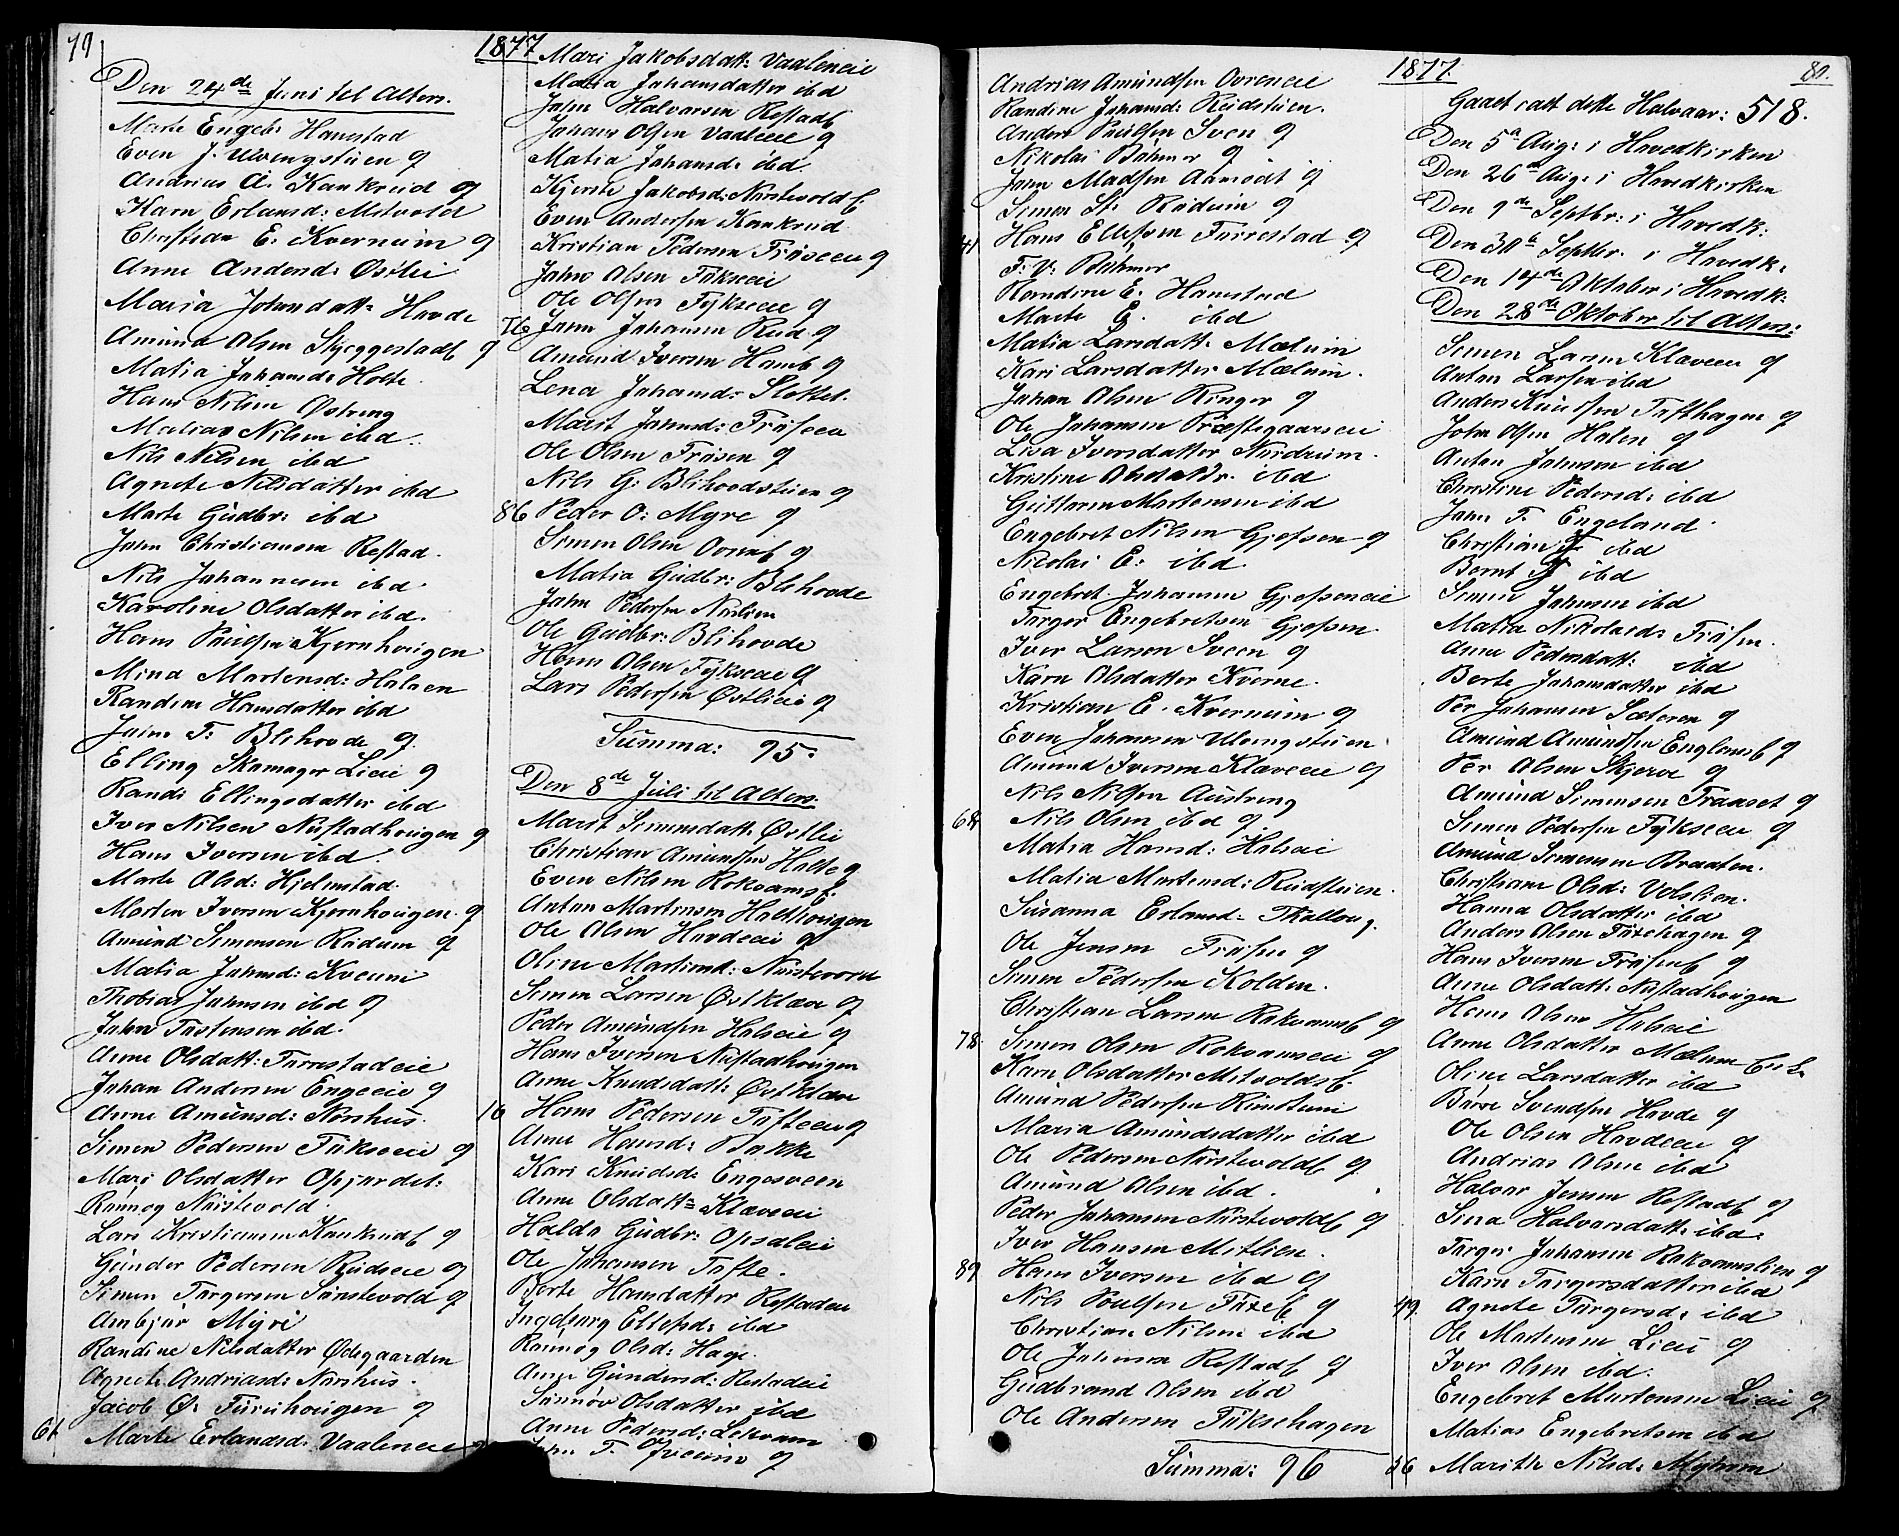 79
1877
Den 24de Juni til Alters.
Marte Engeb: Hamstad
Even J. Ulvengstuen &
Andrias A. Kankrud &
Karn Erlansd: Mitvold
Christian E. Kvernum &
Anne Andersd: Østlie
Maria Johansdatt: Hovde
Amund Olsen Skjeggestadb &
Matia Johansd: Holte
Hans Nilsen Østreng
Matias Nilsen ibd.
Nils Nilsen ibd
Agnete Nilsdatter ibd
Marte Gudbr: ibd
John Christiansen Rostad.
Nils Johannesen ibd.
Karoline Olsdatter ibd.
Hans Paulsen Kjernhougen
Mina Martensd: Halsen
Randine Hansdatter ibd
John T: Blihovde &
Elling Skomager Lieie &
Randi Ellingsdatter ibd
Iver Nilsen Nustadhougen &
Hans Iversen ibd.
Marte Olsd: Hjelmstad.
Morten Iversen Kjernhougen &
Amund Simensen Rudum &
Matia Johnsd: Kveum
Thobias Johnsen ibd &
John Tostensen ibd.
Anne Olsdatt: Furrestadeie
Johan Andersen Engeeie &
Anne Amunsd: Norshus
Simen Pedersen Fikseeie &
Mari Olsdatter Opjordet:
Rønnog Nustevold
Lars Kristiansen Kankrudb &
Gunder Pedersen Rudseie &
Simen Torgersen Sørstevold &
Anbjør Myre
Randine Nilsdatter Ødegaarden
Agnete Andriasd: Norshus.
Jacob Ø. Furuhougen &
61 Marte Erlandsd: Vaaleneie
Mari Jakobsdatt: Vaaleneie
Matia Johansdatter ibd
John Halvorsen Rostadb
Johans Olsen Vaaleeie &
Matia Johansd: ibd.
Kjersti Jakobsd: Norstevoldb
Even Andersen Kankrud
Kristian Pedersen Frøseeie &
John Olsen Fikseeie
Ole Olsen Fykseeie &
76 John Johansen Rud &
Amund Iversen Hamb &
Lena Johansd: Slottet.
Marit Johnsd: Frøseeie
Ole Olsen Frøsen &
Nils G: Blihovdstuen &
86 Peder O: Myre &
Simen Olsen Ovrenb &
Matia Gudbr: Blihovde
John Pedersen Norlien
Ole Gudbr: Blihovde
Hans Olsen Fykseeie &
Lars Pedersen Østlieie &
Summa: 95.
Den 8de Juli til Alters.
Marit Simensdatt: Østlie
Christian Amundsen Holte &
Even Nilsen Rokvamsb
Anton Martinsen Haethougen
Ole Olsen Hovdeeie &
Oline Martinsd: Norstevold
Simen Larsen Østklæv &
Peder Amundsen Halseie &
Hans Iversen Nustadhougen
Anne Knudsdatt: Østklæv
16 Hans Pedersen Tofteeie &
Anne Hansd: Bakke
Kari Knudsd: Engesveen
Anne Olsdatt: Klæveeie
Halda Gudbr: Opsaleie
Ole Johansen Tofte.
Berte Hansdatter Rostadeie
Ingeborg Ellefsd: ibd
Rønnog Olsd: Hage.
Anne Gundersd: Rostadeie
Sønnøv Olsdatter ibd
Anne Pedersd: Lekvam
John T. Kveum &
1877.
80.
Andrias Amundsen Ovreneie
Randine Johansd: Rudstuen.
Anders Paulsen Sveen &
Nikolai Bøhmer &
John Madsen Aamodt &
Simen St: Rudum &
41 Hans Ellefsen Furrestad &
F. V. Bøhmer
Randine E. Hamstad
Marte E. ibd
Matia Larsdatt: Mælum
Kari Larsdatter Mælum.
Johan Olsen Ringer &
Ole Johansen Præstegaarseie
Lisa Iversdatter Nordrum.
Kristine Olsdatr. ibd
Guttorm Mortensen ibd
Engebret Nilsen Gjefsen &
Nicolai E: ibd
Engebret Johansen Gjefseneie
Torger Engebretsen Gjefsen
Iver Larsen Sveen &
Karn Olsdatter Kverne.
Kristian E. Kvernum &
Even Johansen Ulvengstuen
Amund Iversen Klæveeie &
Nils Nilsen Austreng
68 Nils Olsen ibd &
Matia Hansd: Halseie
Matia Mortensd: Rudstuen.
Susanna Erlansd: Skalleug.
Ole Jensen Frøsen &
Simen Pedersen Kolden.
Christian Larsen Rokvamsb &
78 Simen Olsen Rokvamseie &
Karn Olsdatter Mitvoldsb.
Amund Pedersen Runstuen
Maria Amundsdatter ibd
Ole Pedersen Norstevoldb &
Amund Olsen ibd.
Peder Johansen Norstevoldb &
Iver Hansen Mitlien.
89 Hans Iversen ibd &
Nils Poulsen Fixeb &
Christian Nilsen ibd
Ole Johnsen Rostadb &
Gudbrand Olsen ibd
Ole Andersen Fiksehagen
Summa: 96
Gaaet i alt dette Halvaar: 518.
Den 5te Aug: i Hovedkirken
Den 26de Aug: i Hovedkirken
Den 9de Septbr: i Hovedk:
Den 30te Septbr. i Hovedk.
Den 14de Oktober i Hovedk:
Den 28de Oktober til Alters:
Simen Larsen Klæveeie &
Anton Larsen ibd
Anders Knudsen Tofthagen &
John Olsen Halen &
Anton Johnsen ibd
Christine Pedersd: ibd
John T. Engeland.
Christian J. ibd
Bernt J. ibd
Simen Johnsen ibd
Matia Nikolaisd: Frøsen.
Anne Pedersdatt: ibd
Berte Johansdatter ibd
Per Johansen Sæteren &
Amund Amundsen Englandsb &
Per Olsen Skjerve &
Amund Simensen Fraaset &
Simen Pedersen Fykseeie &
Amund Simensen Braaten.
Christiane Olsd: Volslien.
Hanna Olsdatter ibd
Anders Olsen Fixehagen &
Hans Iversen Frøsenb &
Anne Olsdatt: Nustadhougen
Hans Olsen Halseie
Anne Olsdatter Mælum
Oline Larsdatter ibd
Børre Svendsen Hovde &
Ole Olsen Hovdeeie &
Andrias Olsen ibd
Halvor Jensen Rostadb &
Sina Halvorsdatt: ibd.
Torger Johansen Rokvamslien &
Karn Torgersdatter ibd
49. Agnete Torgersd: ibd
Ole Mortensen Lieie &
Iver Olsen ibd.
Engebret Mortensen Lieie &
Matias Engebretsen ibd
56 Marith Nilsd: Myhren